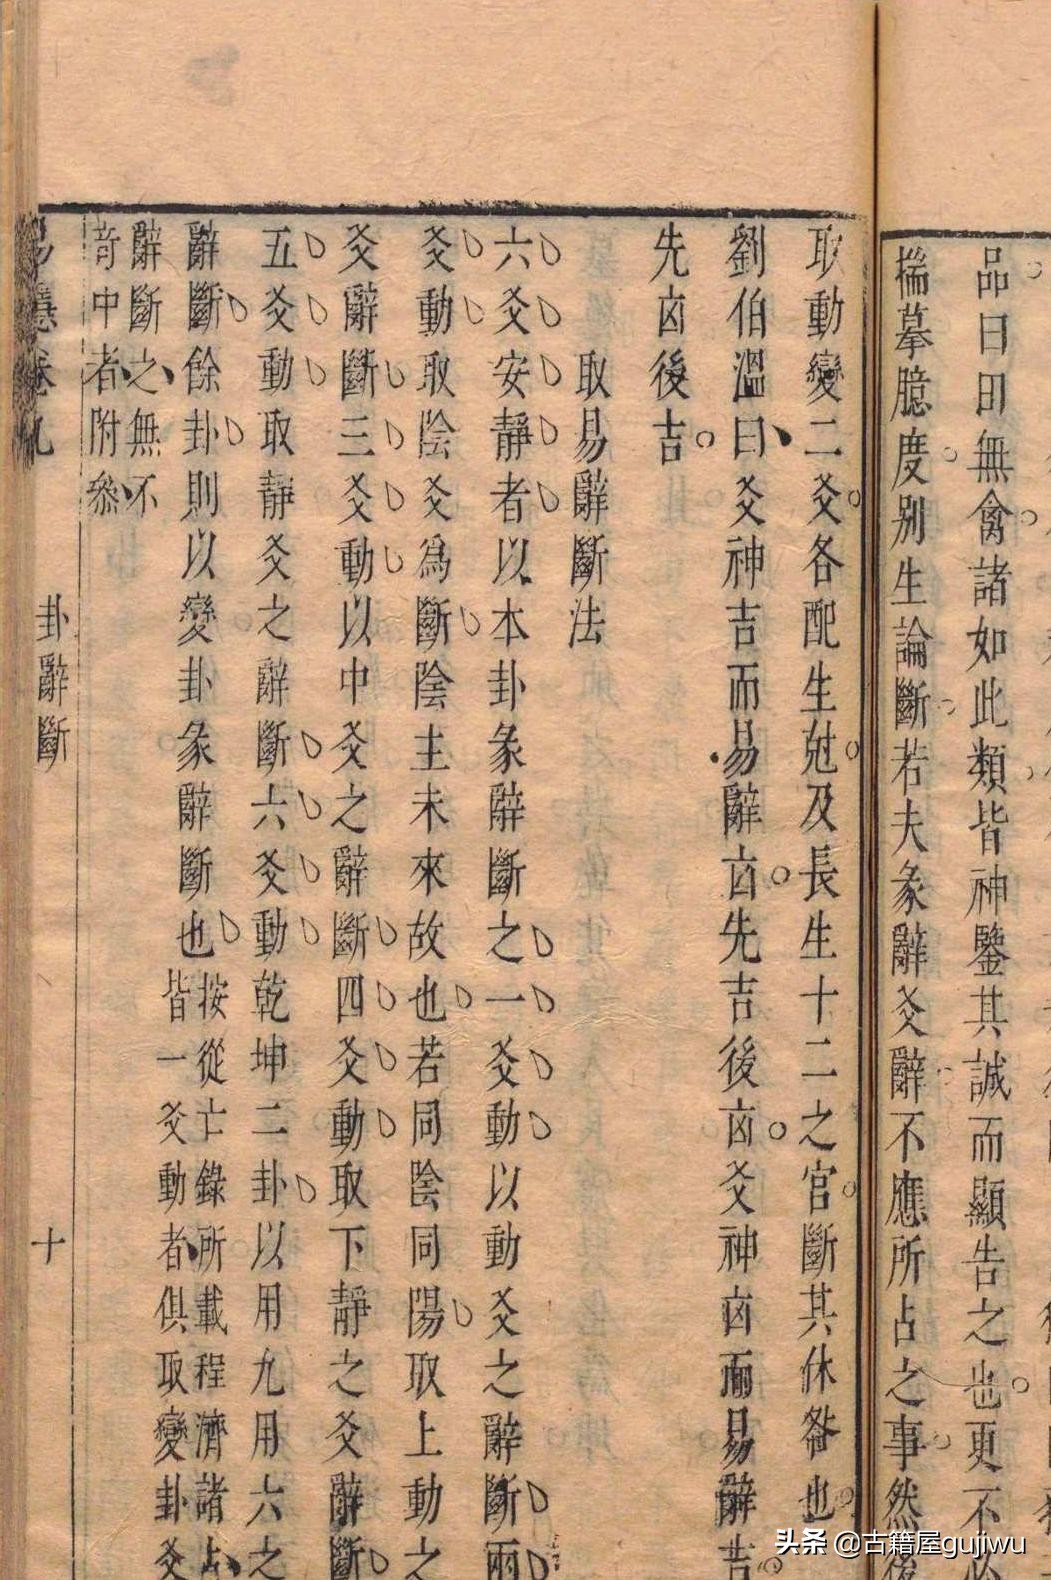 品曰田無禽諸如此類皆神鑒其誠而顯告之也更不必
揣摹臆度别生論斷若夫彖辭爻辭不應所占之事然後
取動變二爻各配生尅及長生十二之官斷其休咎也
劉伯溫曰爻神吉而易辭凶先吉後凶爻神凶而易辭吉
先凶後吉
取易辭斷法
六爻安靜者以本卦彖辭斷之一爻動以動爻之辭斷兩
爻動取陰爻爲斷陰主未來故也若同陰同陽取上動之
爻辭斷三爻動以中爻之辭斷四爻動取下靜之爻辭斷
五爻動取靜爻之辭斷六爻動乾坤二卦以用九用六之
辭斷餘卦則以變卦彖辭斷也
按從亡錄所載程濟諸占
皆一爻動者俱取變卦爻
辭斷之無不
奇中者附叅
易
卷九
卦辭斷
十
头条 @古籍屋gujiwu